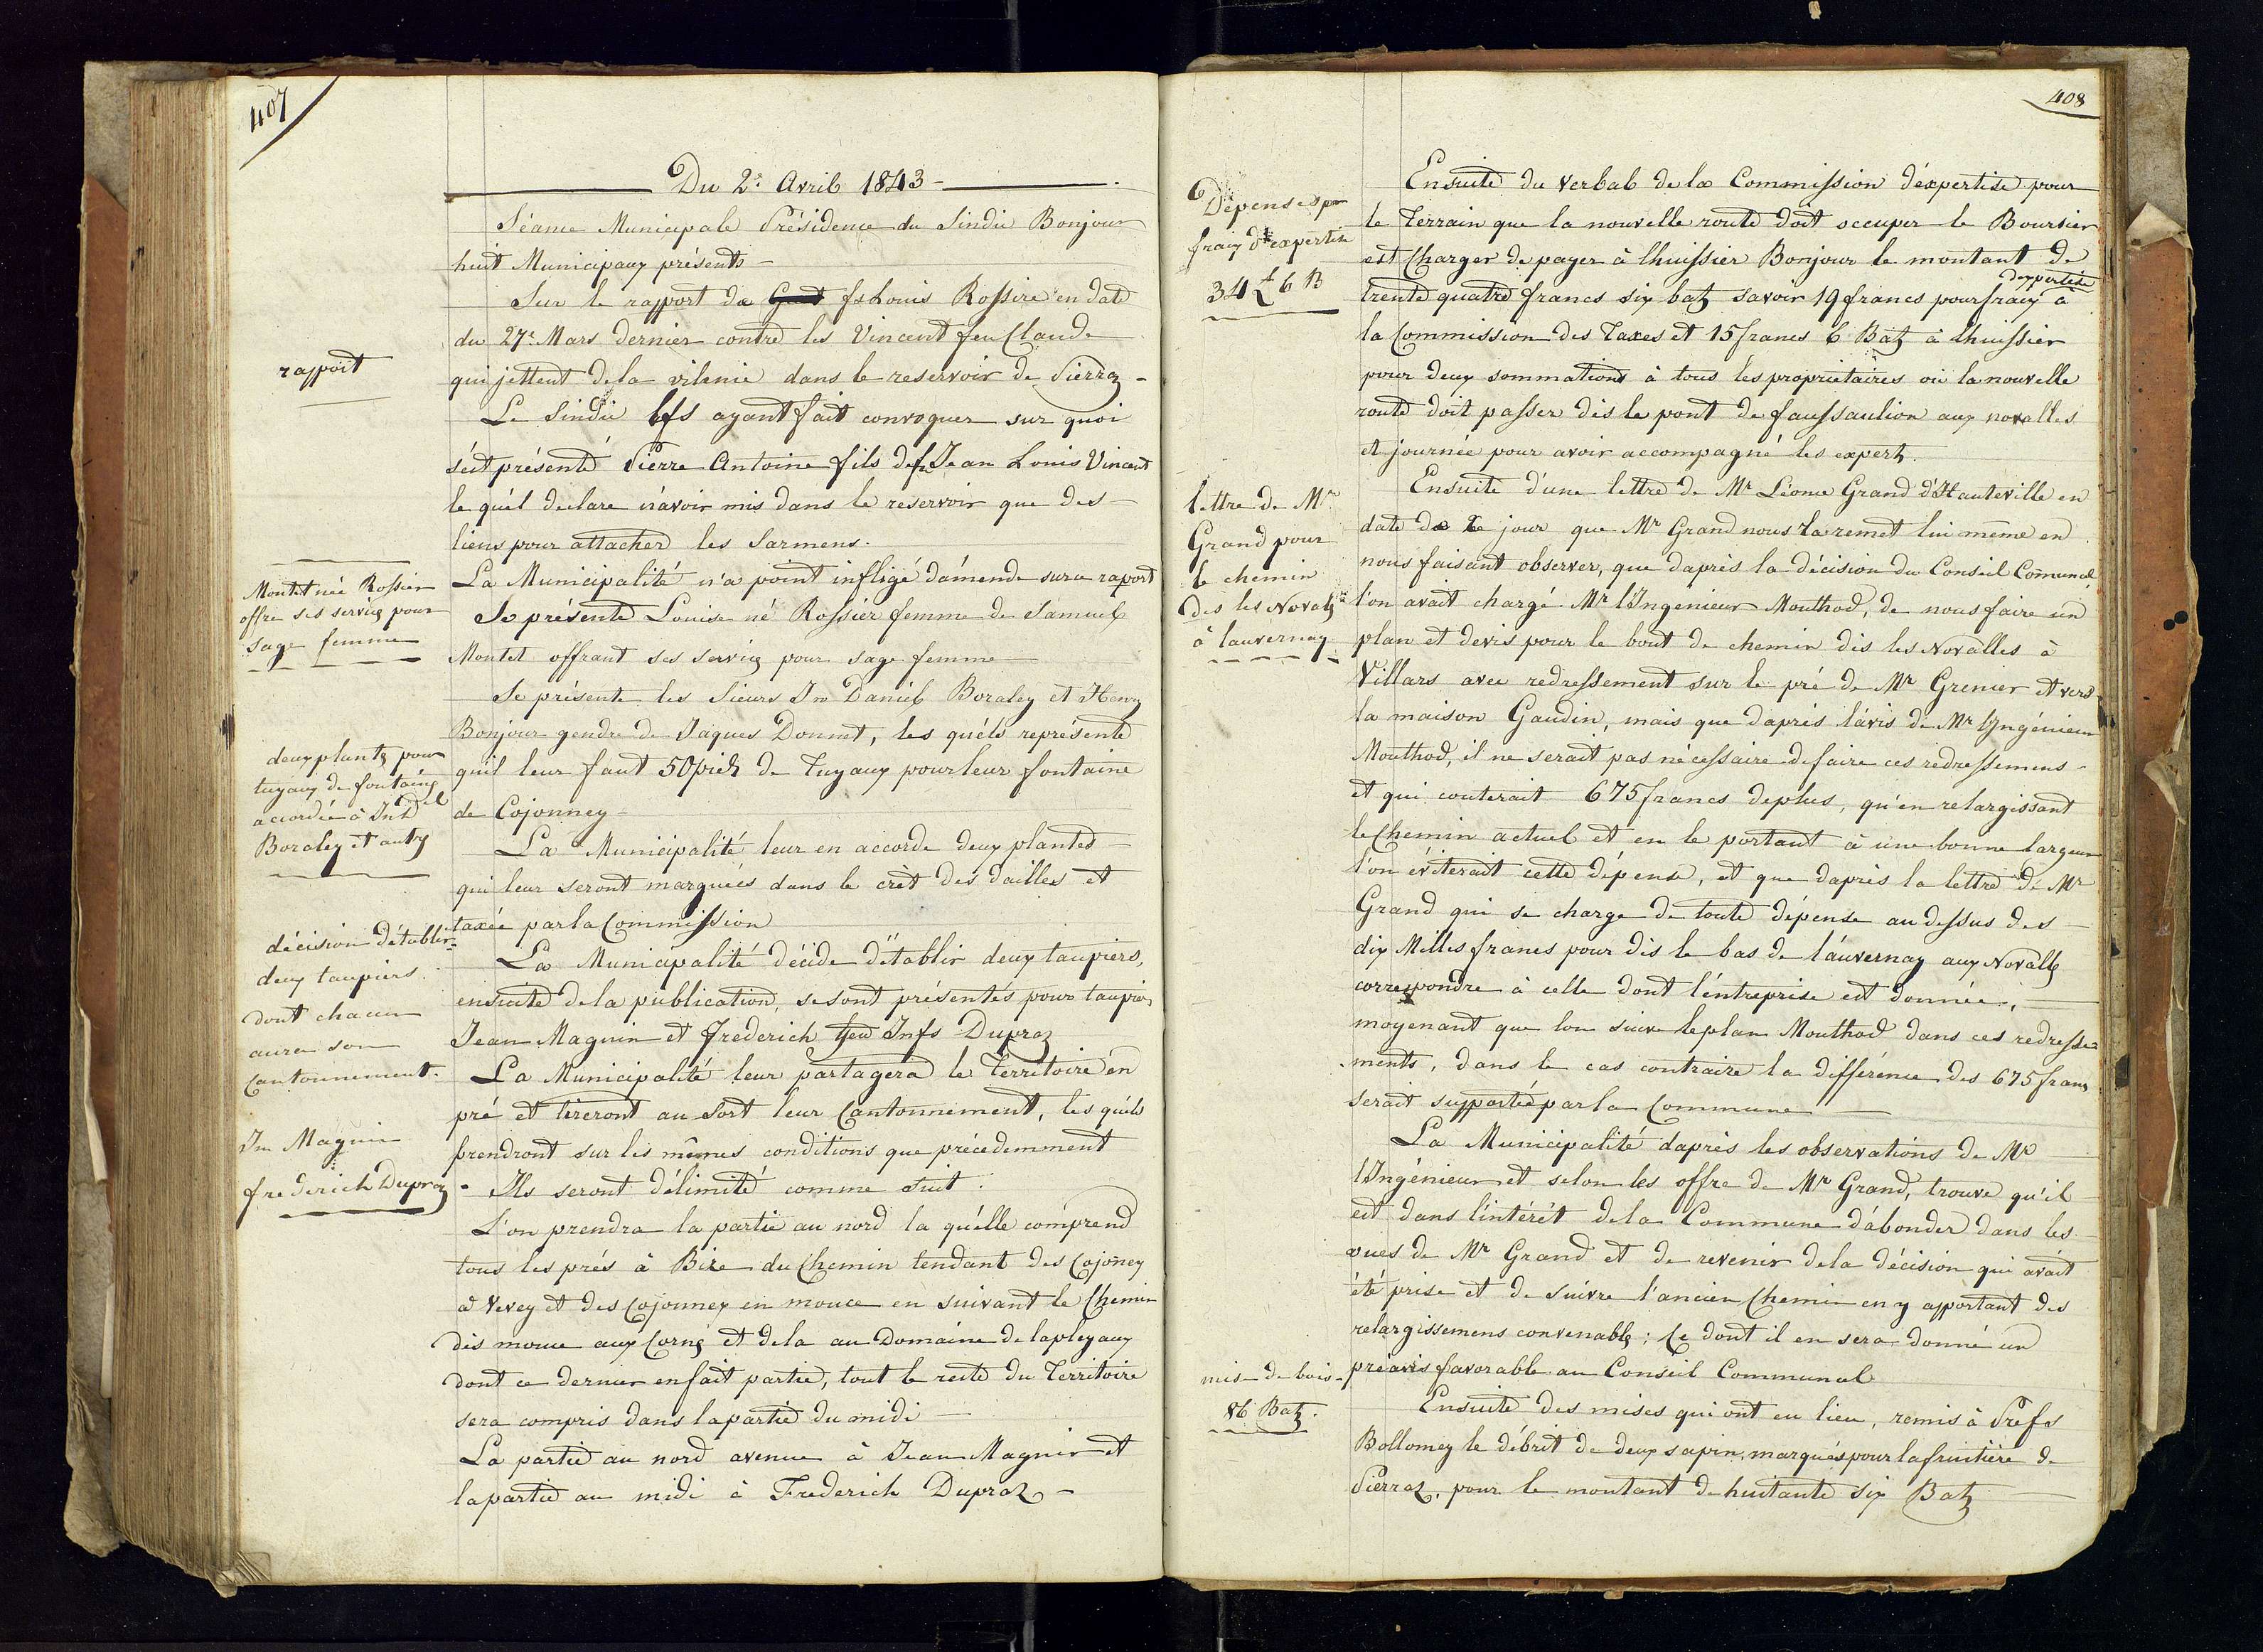 407
Du 2.e Avril 1843
Séance Municipale Présidence du Sindic Bonjour
huit Municipaux présents
Sur le rapport de fs Louis Rossire en date
du 27e Mars dernier contre les Vincent feu Claude
rapport
qui jettent de la vilenie dans le reservoir de Pierraz
Le Sindic les ayant fait convoquer sur quoi
s'est présenté Pierre Antoine fils de fs Jean Louis Vincent
le quél declare n'avoir mis dans le reservoir que des
liens pour attacher les Sarmens.
La Municipalité n'a point infligé d'amende sur ce raport
Montet née Rossier
offre ses serviçs pour
sage femme
Se présente Louise né Rossier femme de Samuel
Montet offrant ses serviçs pour sage femme
Se présente les Sieurs Jn Daniel Boraley et Henry
Bonjour gendre de Jaques Donnet, les quéls représente
deux plantes pour
tuyaux de fontaine
accordée à Jn Del
Boraley et autrs
quil leur faut 50 pieds de Tuyaux pour leur fontaine
de Cojonney
La Municipalité leur en accorde deux plantes
qui leur seront marqueés dans le crêt des dailles et
taxée par la Commission
décision d'établir
deux taupiers
dont chacun
aura son
Cantonnement.
La Municipalité décide d'établir deux taupiers,
ensuite de la publication, se sont présentés pour taupier
Jean Magnin et frederich feu Jnfs Dupraz
La Municipalité leur partagera le Territoire en
pré et tireront au Sort leur Cantonnement, les quéls
Jn Magnin
frederich Dupraz
prendront sur les mêmes conditions que précedemment
Ils seront délimité comme suit :
L'on prendra la partie au nord la quélle comprend
tous les prés à Bize du Chemin tendant des Cojoney
à Vevey et des Cojonney en mouce en suivant le Chemin
dès mouce aux Cornes et dela au Domaine de lapleyaux
dont ce dernier en fait partie, tout le reste du Territoire
sera compris dans la partie du midi
La partie au nord avenue à Jean Magnin et
la partie au midi à Frederich Dupraz
408
Dépenses pr
fraix d'expertise
34 £ 6 B
Ensuite du verbal de la Commission d'expertise pour
le Terrain que la nouvelle route doit occuper le Boursier
est Charger de payer à lhuissier Bonjour le montant de
trente quatre francs six batz savoir 19 francs pour fraix d'expertise à
la Commission des Taxes et 15 francs 6 Batz à lhuissier
pour deux sommations à tous lés propriétaires où la nouvelle
route doit passer dès le pont de faussaulion aux novalles
et journée pour avoir accompagné les expertz.
lettre de Mr
Grand pour
le chemin
des les Novalles
à lauvernay
Ensuite d'une lettre de Mr Léonce Grand d'Hauteville en
date de ce jour que Mr Grand nous la remet lui même en
nous faisant observer, que d'aprés la décision du Conseil Comunal
l'on avait chargé Mr l'Ingenieur Mouthod, de nous faire un
plan et devis pour le bout de chemin dès les Novalles à
Villars avec redressement sur le pré de Mr Grenier et vers
la maison Gaudin, mais que daprès l'avis de Mr l'Ingénieur
Mouthod, il ne serait pas nécessaire de faire ces redressemens
et qui couterait 675 francs de plus, qu'en relargissant
le Chemin actuel et en le portant à une bonne largeur
l'on éviterait cette dépense, et que d'aprés la lettre de Mr
Grand qui se charge de toute dépense au dessus des
dix Milles francs pour dès le bas de l'auvernay aux Novalls
correspondre à celle dont l'entreprise est donnée,
moyenant que l'on suive le plan Mouthod dans ces redresse=
ments, dans le cas contraire la différence des 675 francs
serait supportée par la Commune
La Municipalité d'après les observations de Mr
l'Ingénieur et selon les offre de Mr Grand, trouve qu'il
est dans l'intérêt dela Commune d'abonder dans les
vues de Mr Grand et de revenir dela décision qui avait
été prise et de suivre l'ancien Chemin en y apportant des
relargissemens convenables; Ce dont il en sera donné un
préavis favorable au Conseil Communal
mis de bois
86 Batz.
Ensuite des mises qui ont eu lieu, remis à Pre fs
Bollomey le débrit de deux sapin marqués pour la fruitière de
Pierraz, pour le montant de huitante six Batz